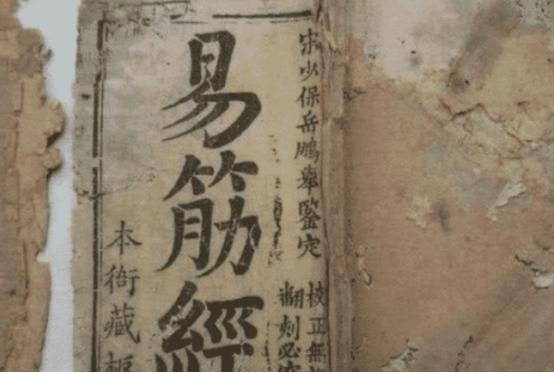 宋少保岳鵬舉鑒定
校正無
翻刻必
易筋經
本衙藏板